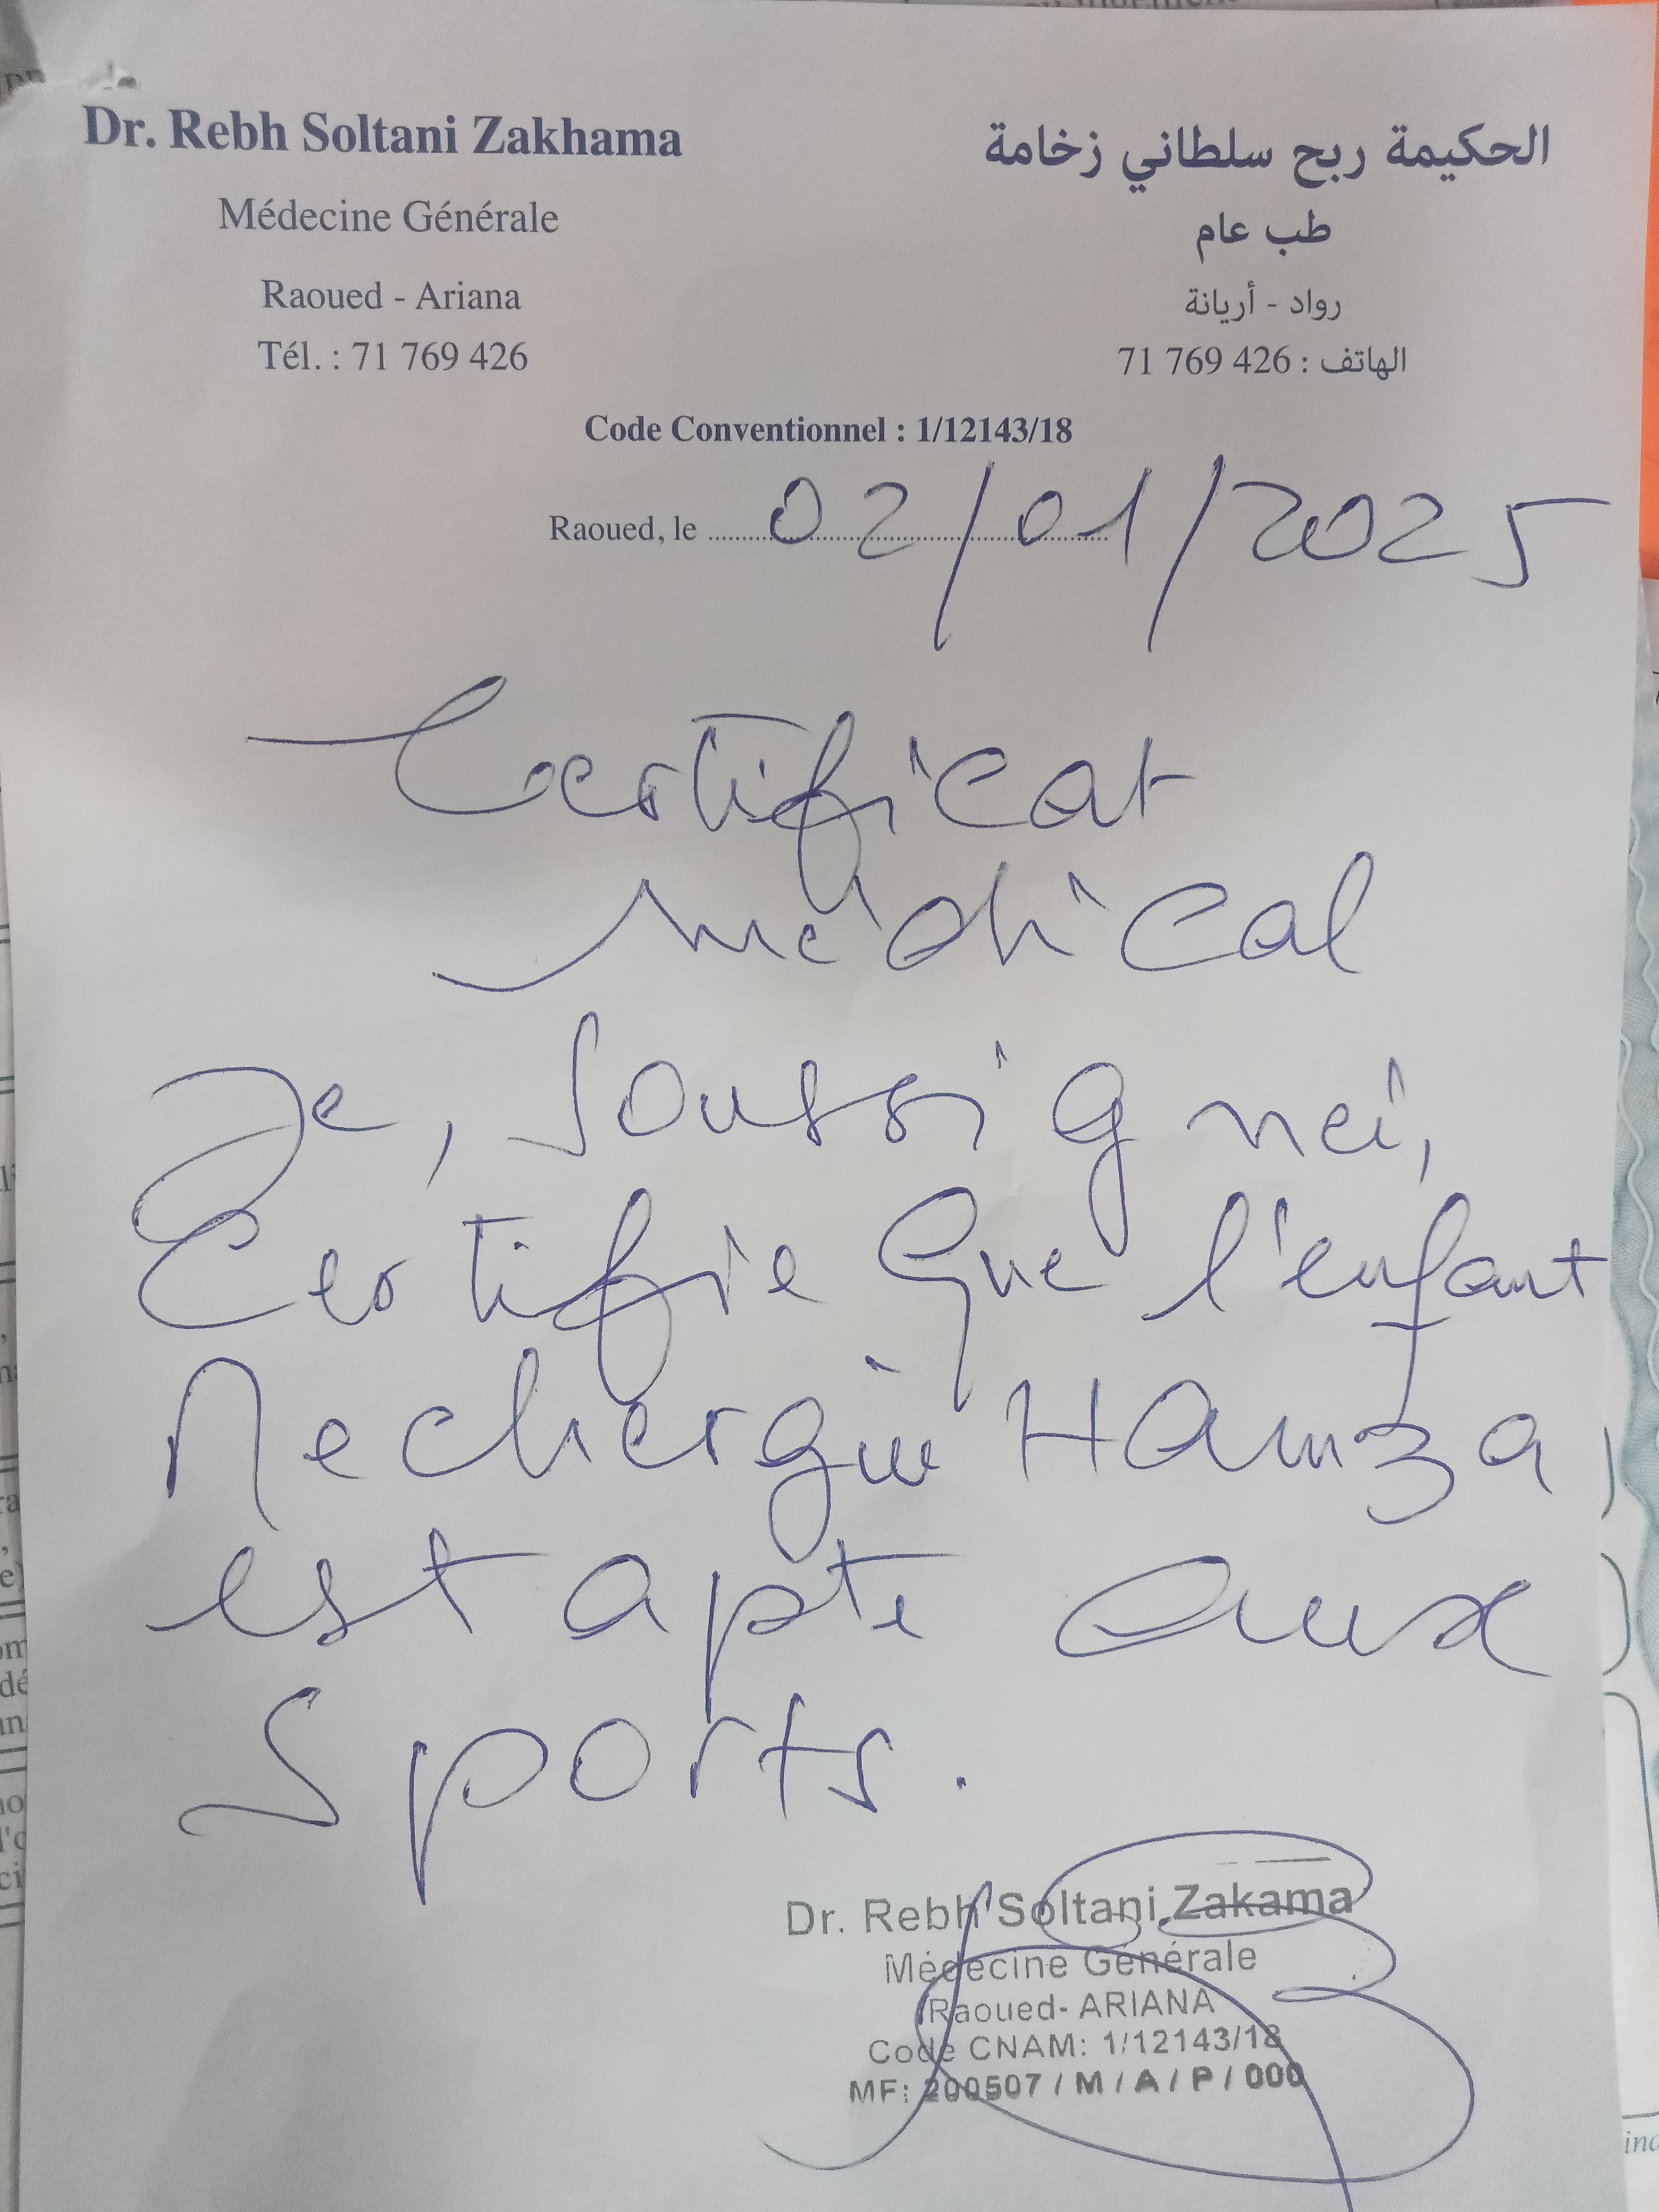 Dr. Rebh Soltani Zakhama
Médecine Générale
Raoued - Ariana
Tél. : 71 769 426
الحكيمة ربح سلطاني زخامة
طب عام
رواد - أريانة
الهاتف : 71 769 426
Code Conventionnel : 1/12143/18
Raoued, le 02/01/2025
Certificat
médical
Je, soussigné,
Certifie que l'enfant
Mechergui Hamza
est apte aux
sports.
Dr. Rebh Soltani Zakama
Médecine Générale
Raoued- ARIANA
Code CNAM: 1/12143/18
MF: 200507 / M / A / P / 000